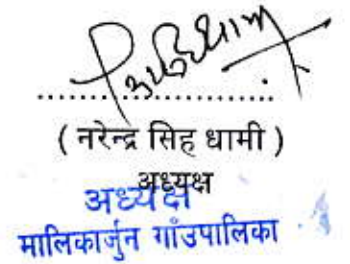 ....................
( नरेन्द्र सिह धामी )
अध्यक्ष
अध्यक्ष
मालिकार्जुन गाँउपालिका